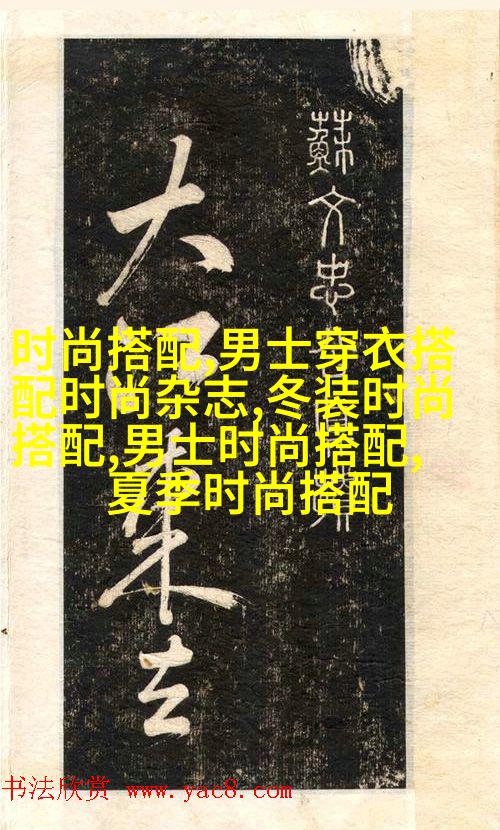 蘇文忠
大東去
时尚搭配,男士穿衣搭
配时尚杂志,冬装时尚
搭配,男士时尚搭配,
夏季时尚搭配
书法欣赏 www.yac8.com